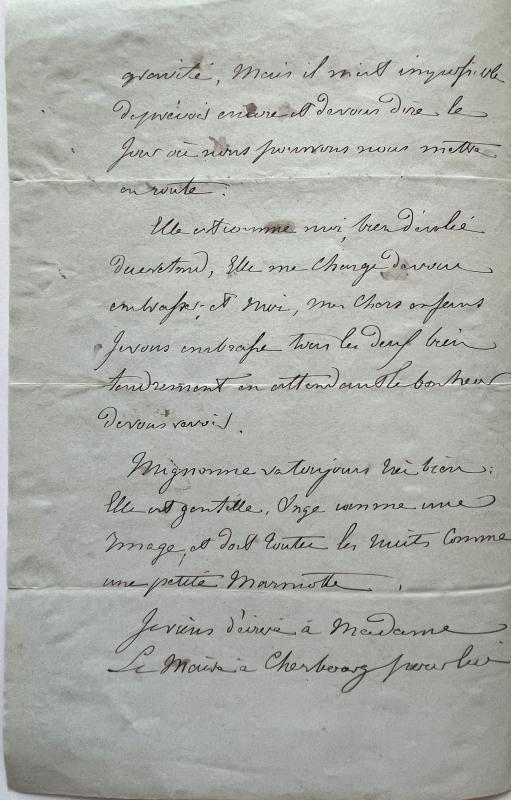 gravité, Mais il m'est impossible
de prévoir encore et de vous dire le
Jour où nous pourrons nous mettre
en route.
Elle est comme moi, bien désolée
du retard, Elle me charge de vous
embrasser, et Moi, mes chers enfans
Je vous embrasse tous les deux bien
tendrement en attendant le bonheur
de vous revoir.
Mignonne va toujours très bien.
Elle est gentille, Sage comme une
Image, et dort toutes les nuits Comme
une petite Marmotte.
Je viens d'écrire à Madame
Le Maire à Cherbourg pour lui